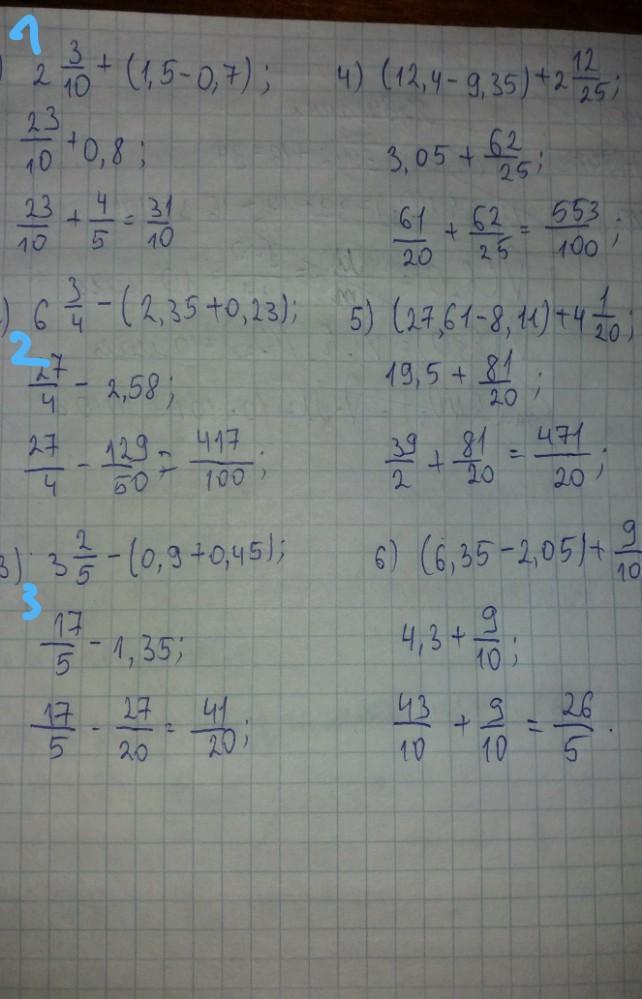 1
) 2 3/10 + (1,5 - 0,7);
23/10 + 0,8;
23/10 + 4/5 = 31/10
) 6 3/4 - (2,35 + 0,23);
2
27/4 - 2,58;
27/4 - 129/50 = 417/100;
3) 3 2/5 - (0,9 + 0,45);
3
17/5 - 1,35;
17/5 - 27/20 = 41/20;
4) (12,4 - 9,35) + 2 12/25;
3,05 + 62/25;
61/20 + 62/25 = 553/100;
5) (27,61 - 8,11) + 4 1/20;
19,5 + 81/20;
39/2 + 81/20 = 471/20;
6) (6,35 - 2,05) + 9/10
4,3 + 9/10;
43/10 + 9/10 = 26/5.